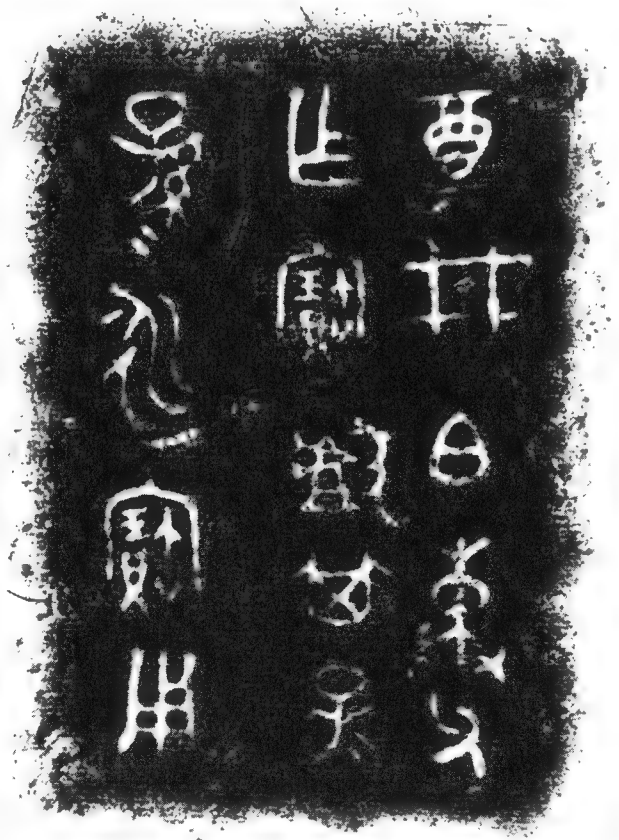 奠井白父
乍寶甗其子
孫=永寶用